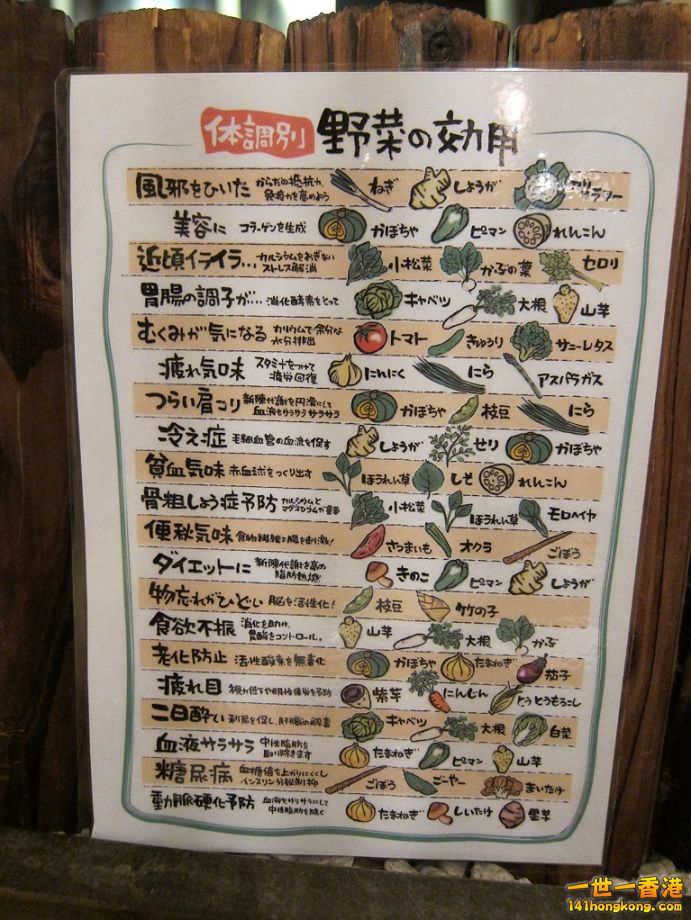 体調別 野菜の効用
風邪をひいた からだの抵抗力、免疫力を高めよう ねぎ しょうが カリフラワー
美容に コラーゲンを生成 かぼちゃ ピーマン れんこん
近頃イライラ… カルシウムをおぎない ストレス解消 小松菜 かぶの葉 セロリ
胃腸の調子が… 消化酵素をとって キャベツ 大根 山芋
むくみが気になる カリウムで余分な水分排出 トマト きゅうり サニーレタス
疲れ気味 スタミナをつけて疲労回復 にんにく にら アスパラガス
つらい肩コリ 新陳代謝を円滑にして血液もサラサラサラサラ かぼちゃ 枝豆 にら
冷え症 毛細血管の血流を促す しょうが せり かぼちゃ
貧血気味 赤血球をつくり出す ほうれい草 しそ れんこん
骨粗しょう症予防 カルシウムとマグネシウムが重要 小松菜 ほうれい草 モロヘイヤ
便秋気味 食物繊維で腸を刺激! さつまいも オクラ ごぼう
ダイエットに 新陳代謝を高め脂肪燃焼 きのこ ピーマン しょうが
物忘れがひどい 脳を活性化! 枝豆 竹の子
食欲不振 消化を助け、胃酸をコントロール。 山芋 大根 かぶ
老化防止 活性酸素を無毒化 かぼちゃ たまねぎ 茄子
疲れ目 視力低下や眼性疲労を予防 紫芋 にんじん とうもろこし
二日酔い 利尿を促し、肝臓の解毒 キャベツ 大根 白菜
血液サラサラ 中性脂肪を取り除きます たまねぎ ピーマン 山芋
糖尿病 血糖値を上がりにくくし インスリン分泌 ごぼう ごーやー まいたけ
動脈硬化予防 血液をサラサラにして中性脂肪を除く たまねぎ しいたけ 里芋
一世一香港
141hongkong.com